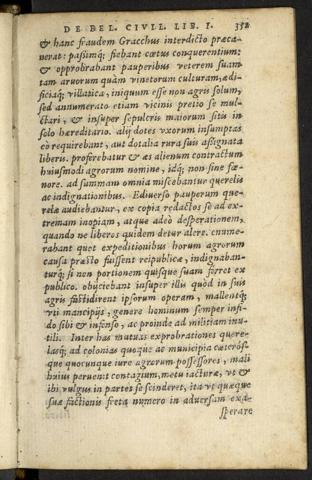 DE BEL. CIVIL. LIB. I. 352
& hanc fraudem Gracchus interdicto præca-
uerat: passimq; fiebant cœtus conquerentium:
& opprobrabant pauperibus veterem suam
tam aruorum quàm vinetorum culturam, ædi-
ficiaq; villatica, iniquum esse non agris solum,
sed annumerato etiam vicinis pretio se mul-
ctari, & insuper sepulcris maiorum sitis in
solo hæreditario. alij dotes vxorum insumptas
eò requirebant, aut dotalia rura suis assignata
liberis. proferebatur & æs alienum contractum
huiusmodi agrorum nomine, idq; non sine fœ-
nore. ad summam omnia miscebantur querelis
ac indignationibus. Ediuerso pauperum que-
relæ audiebantur, ex copia redactos se ad ex-
tremam inopiam, atque adeò desperationem,
quando ne liberos quidem detur alere. enume-
rabant quot expeditionibus horum agrorum
causa præsto fuissent reipublicæ, indignaban-
turq; si non portionem quisque suam ferret ex
publico. obijciebant insuper illis quòd in suis
agris fastidirent ipsorum operam, mallentq;
vti mancipijs, genere hominum semper infi-
do sibi & infenso, ac proinde ad militiam inu-
tili. Inter has mutuas exprobrationes quere-
lasq; ad colonias quoque ac municipia cæterósq-
que quocunque iure agrorum possessores, mali
huius peruenit contagium, metu iacturæ, vt &
ibi vulgus in partes se scinderet, ita vt quæque
suæ factionis freta numero in aduersam exa-
sperare